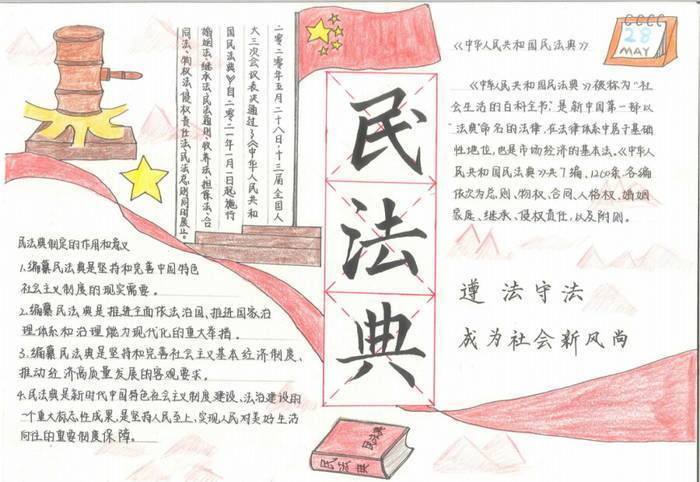 二零二零年五月二十八日,十三届全国人
大三次会议表决通过了《中华人民共和
国民法典》,自二零二一年一月一日起施行
婚姻法、继承法、民法通则、收养法、担保法、合
同法、物权法、侵权责任法、民法总则同时废止。
民法典
《中华人民共和国民法典》
28
MAY
《中华人民共和国民法典》被称为“社
会生活的百科全书”,是新中国第一部以
“法典”命名的法律,在法律体系中居于基础
性地位,也是市场经济的基本法。《中华人
民共和国民法典》共7编、1260条,各编
依次为总则、物权、合同、人格权、婚姻
家庭、继承、侵权责任,以及附则。
遵法守法
成为社会新风尚
民法典制定的作用和意义
1.编纂民法典是坚持和完善中国特色
社会主义制度的现实需要。
2.编纂民法典是推进全面依法治国、推进国家治
理体系和治理能力现代化的重大举措。
3.编纂民法典是坚持和完善社会主义基本经济制度、
推动经济高质量发展的客观要求。
4.民法典是新时代中国特色社会主义制度建设、法治建设的
一个重大标志性成果,是坚持人民至上,实现人民对美好生活
向往的重要制度保障。
民法典
民法典